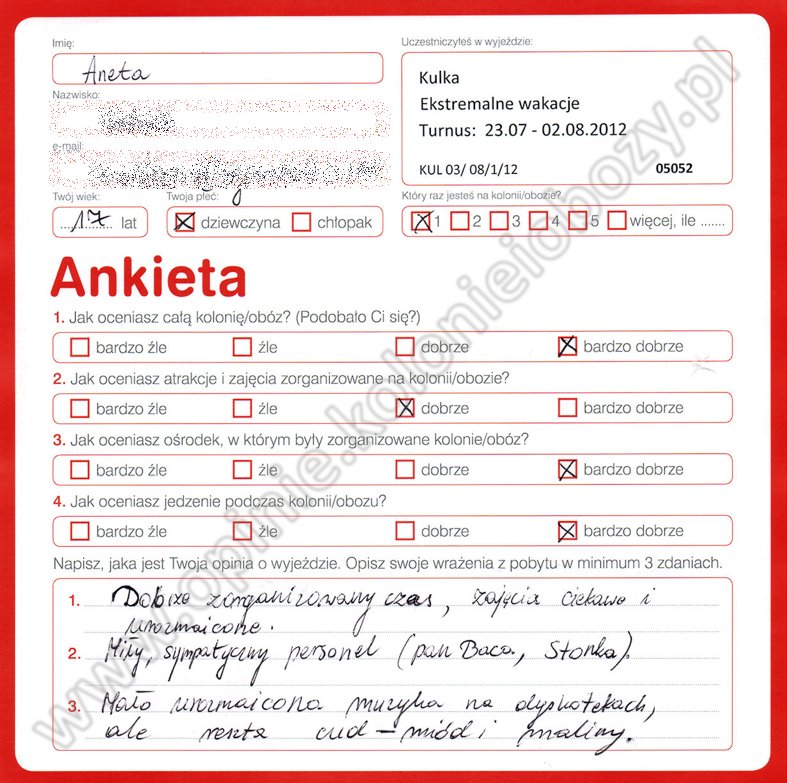 Imię:
Aneta
Nazwisko:
e-mail:
Twój wiek:
17 lat
Twoja płeć:
dziewczyna chłopak
Uczestniczyłeś w wyjeździe:
Kulka
Ekstremalne wakacje
Turnus: 23.07 - 02.08.2012
KUL 03/ 08/1/12 05052
Który raz jesteś na kolonii/obozie?
1 2 3 4 5 więcej, ile .......
Ankieta
1. Jak oceniasz całą kolonię/obóz? (Podobało Ci się?)
bardzo źle źle dobrze bardzo dobrze
2. Jak oceniasz atrakcje i zajęcia zorganizowane na kolonii/obozie?
bardzo źle źle dobrze bardzo dobrze
3. Jak oceniasz ośrodek, w którym były zorganizowane kolonie/obóz?
bardzo źle źle dobrze bardzo dobrze
4. Jak oceniasz jedzenie podczas kolonii/obozu?
bardzo źle źle dobrze bardzo dobrze
Napisz, jaka jest Twoja opinia o wyjeździe. Opisz swoje wrażenia z pobytu w minimum 3 zdaniach.
1. Dobrze zorganizowany czas, zajęcia ciekawe i
urozmaicone.
2. Miły, sympatyczny personel (pan Baca, Stonka).
3. Mało urozmaicona muzyka na dyskotekach,
ale reszta cud - miód i maliny.
www.opinie.kolonieiobozy.pl